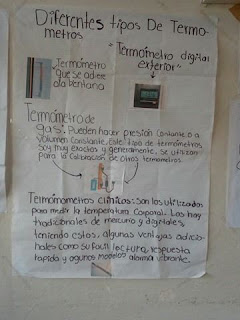 Diferentes tipos De Termo-
metros
"Termoímetro digital
exterior"
Termometro
que se adiere
ala Ventana
Termómetro de
gas: Pueden hacer presión constante o a
volumen constante. Este tipo de termometros
soy muy exactos y generalmente, se utilizan
para la calibración de otros termometros.
Termómometros clínicos: Son los utilizados
para medir la temperatura corporal. Los hay
tradicionales de mercurio y digitales,
teniendo estos, algunas ventajas adicio-
nales como su facil lectura, respuesta
rapida y agunos modelos alarma vibrante.